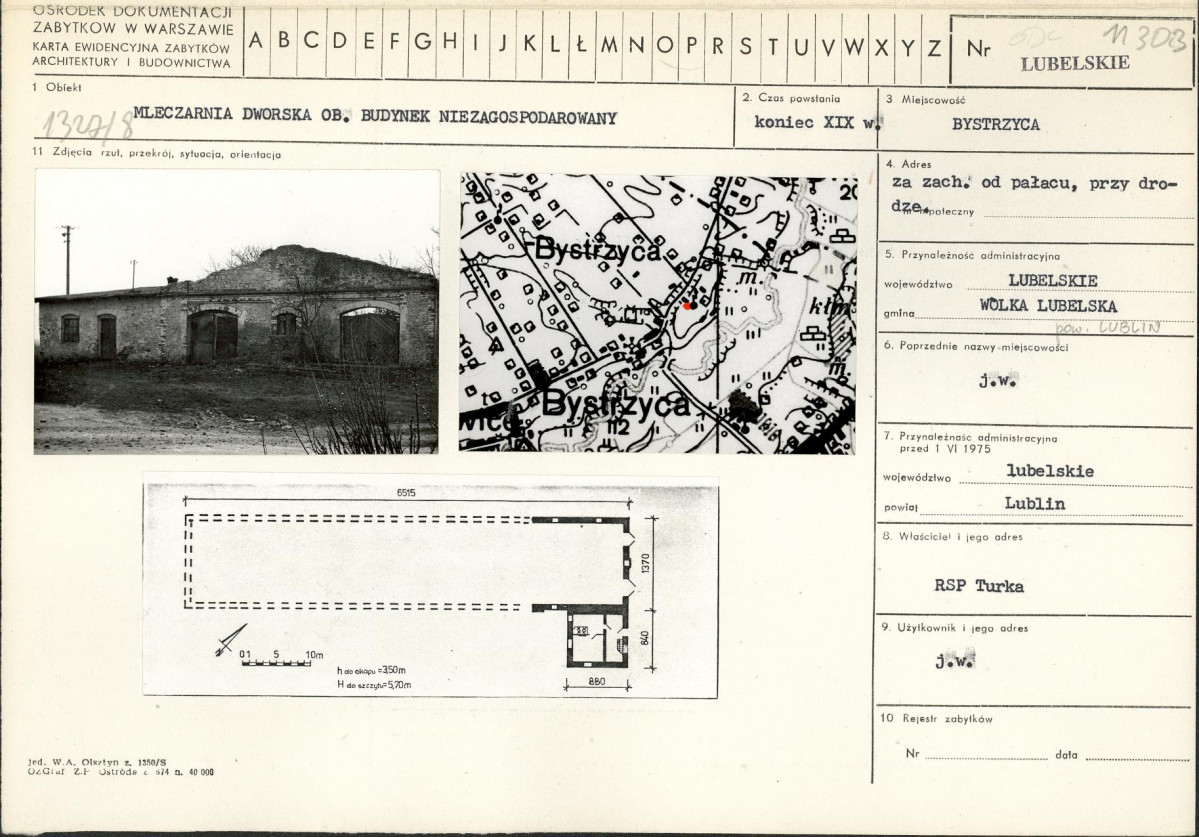 OŚRODEK DOKUMENTACJI
ZABYTKÓW W WARSZAWIE
KARTA EWIDENCYJNA ZABYTKÓW
ARCHITEKTURY I BUDOWNICTWA
A B C D E F G H I J K L Ł M N O P R S T U V W X Y Z
Nr
11303
LUBELSKIE
1 Obiekt
1327/8
MLECZARNIA DWORSKA OB. BUDYNEK NIEZAGOSPODAROWANY
2. Czas powstania
koniec XIX w.
3 Miejscowość
BYSTRZYCA
11 Zdjęcia rzut, przekrój, sytuacja, orientacja
4. Adres
za zach. od pałacu, przy dro-
dze.
hipoteczny
Bystrzyca
m.
20
kłm
m.
t
Bystrzyca
112
5. Przynależność administracyjna
województwo LUBELSKIE
gmina WÓLKA LUBELSKA
pow. LUBLIN
6. Poprzednie nazwy miejscowości
j.w.
7. Przynależność administracyjna
przed 1 VI 1975
województwo lubelskie
powiat Lublin
8. Właściciel i jego adres
RSP Turka
9. Użytkownik i jego adres
j.w.
10 Rejestr zabytków
Nr data
6515
1370
840
880
01 5 10m
h do okapu =3,50m
H do szczytu=5,70m
jed. W.A. Olsztyn z. 1350/S
OZGraf Z.P Ostróda z. 674 n. 40 000